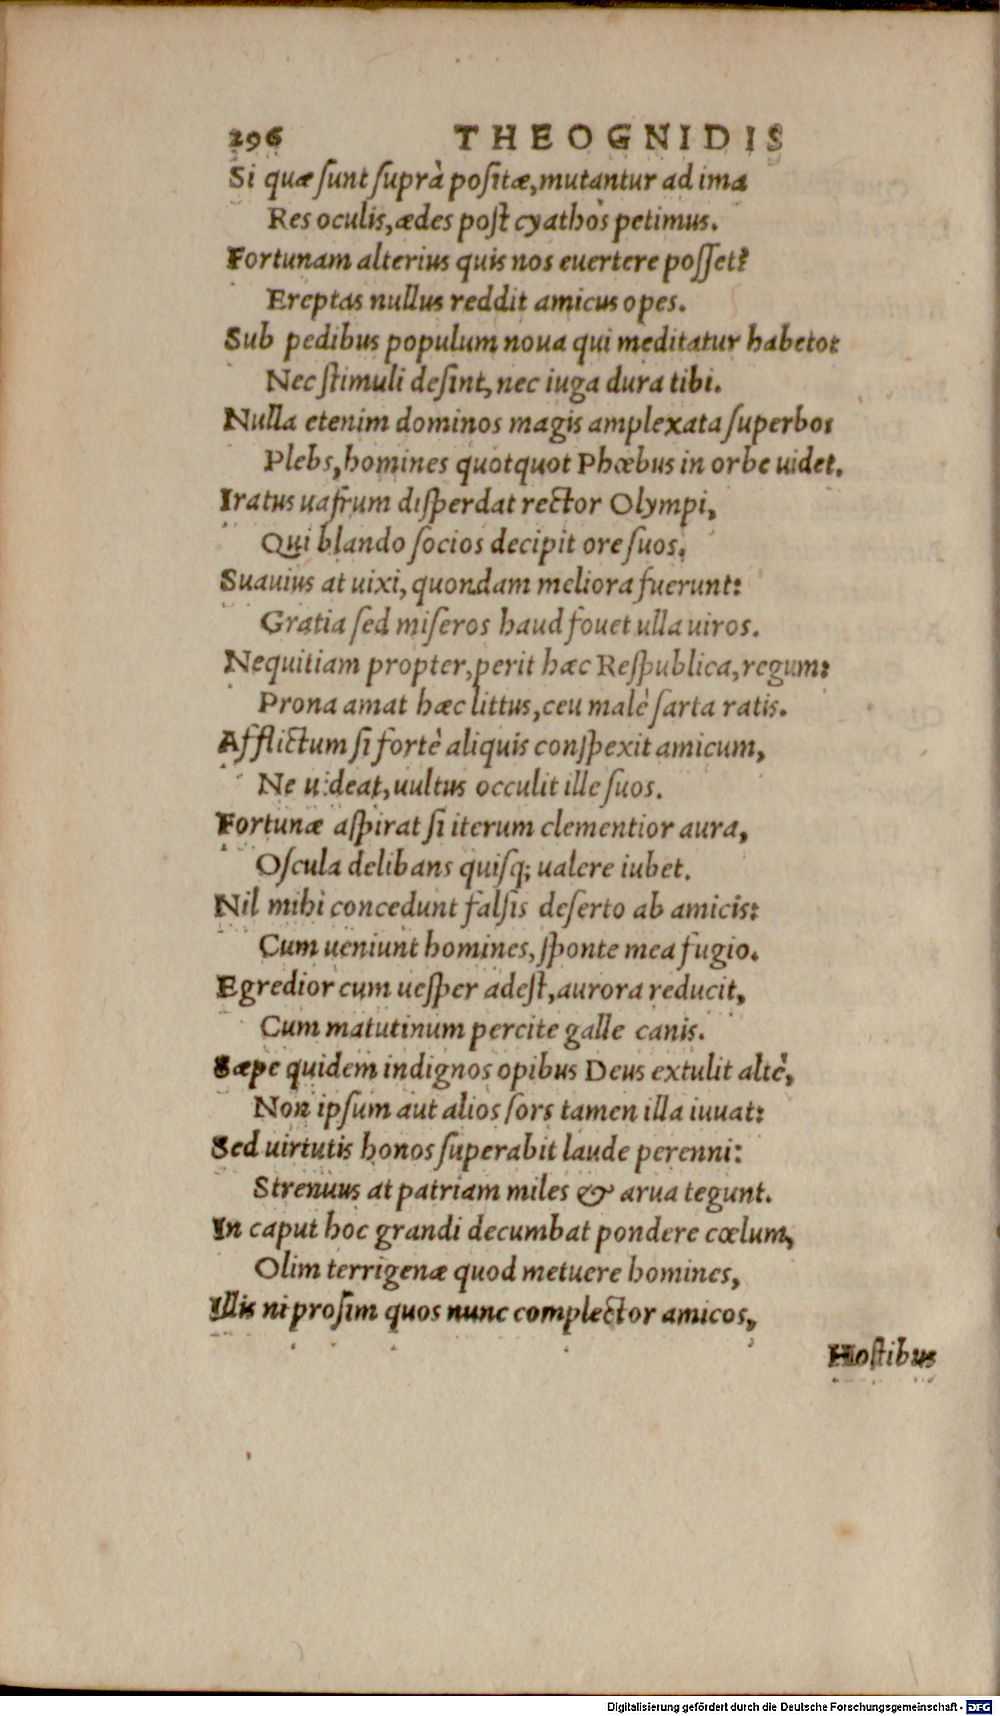 296 THEOGNIDIS
Si quæ ſunt ſuprà poſitæ, mutantur ad ima
Res oculis, ædes poſt cyathos petimus.
Fortunam alterius quis nos euertere poſſet?
Ereptas nullus reddit amicus opes.
Sub pedibus populum noua qui meditatur habeto:
Nec ſtimuli deſint, nec iuga dura tibi.
Nulla etenim dominos magis amplexata ſuperbos
Plebs, homines quotquot Phœbus in orbe uidet.
Iratus uafrum diſperdat rector Olympi,
Qui blando ſocios decipit ore ſuos.
Suauius at uixi, quondam meliora fuerunt:
Gratia ſed miſeros haud fouet ulla uiros.
Nequitiam propter, perit hæc Reſpublica, regum:
Prona amat hæc littus, ceu malè ſarta ratis.
Afflictum ſi fortè aliquis conſpexit amicum,
Ne uideat, uultus occulit ille ſuos.
Fortunæ aſpirat ſi iterum clementior aura,
Oſcula delibans quiſq; ualere iubet.
Nil mihi concedunt falſis deſerto ab amicis:
Cum ueniunt homines, ſponte mea fugio.
Egredior cum ueſper adeſt, aurora reducit,
Cum matutinum percite galle canis.
Sæpe quidem indignos opibus Deus extulit altè,
Non ipſum aut alios ſors tamen illa iuuat:
Sed uirtutis honos ſuperabit laude perenni:
Strenuus at patriam miles & arua tegunt.
In caput hoc grandi decumbat pondere cœlum,
Olim terrigenæ quod metuere homines,
Illis ni proſim quos nunc complector amicos,
Hoſtibus
Digitalisierung gefördert durch die Deutsche Forschungsgemeinschaft - DFG